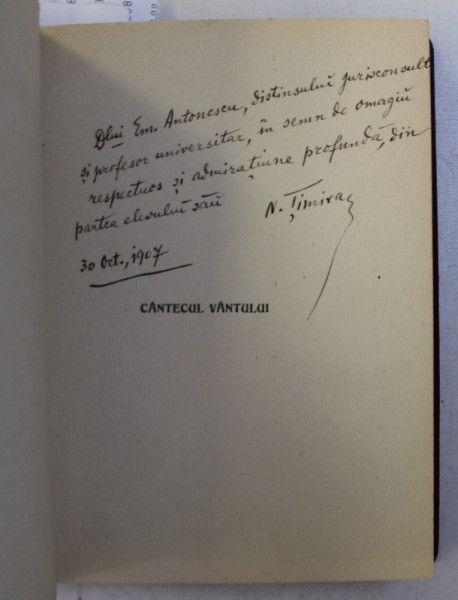 Dlui Em. Antonescu, distinsului jurisconsult
și profesor universitar, în semn de omagiŭ
respectuos și admirațiune profundă, din
partea elevuluĭ săŭ
N. Țimiraș
30 Oct., 1907
CÂNTECUL VÂNTULUI